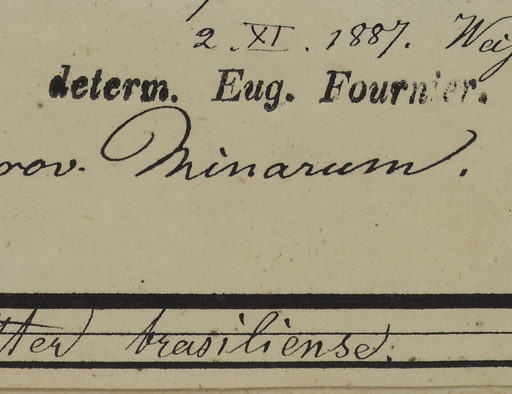 2. XI. 1887.
determ. Eug. Fournier.
rov. Minarum.
tter brasiliense.